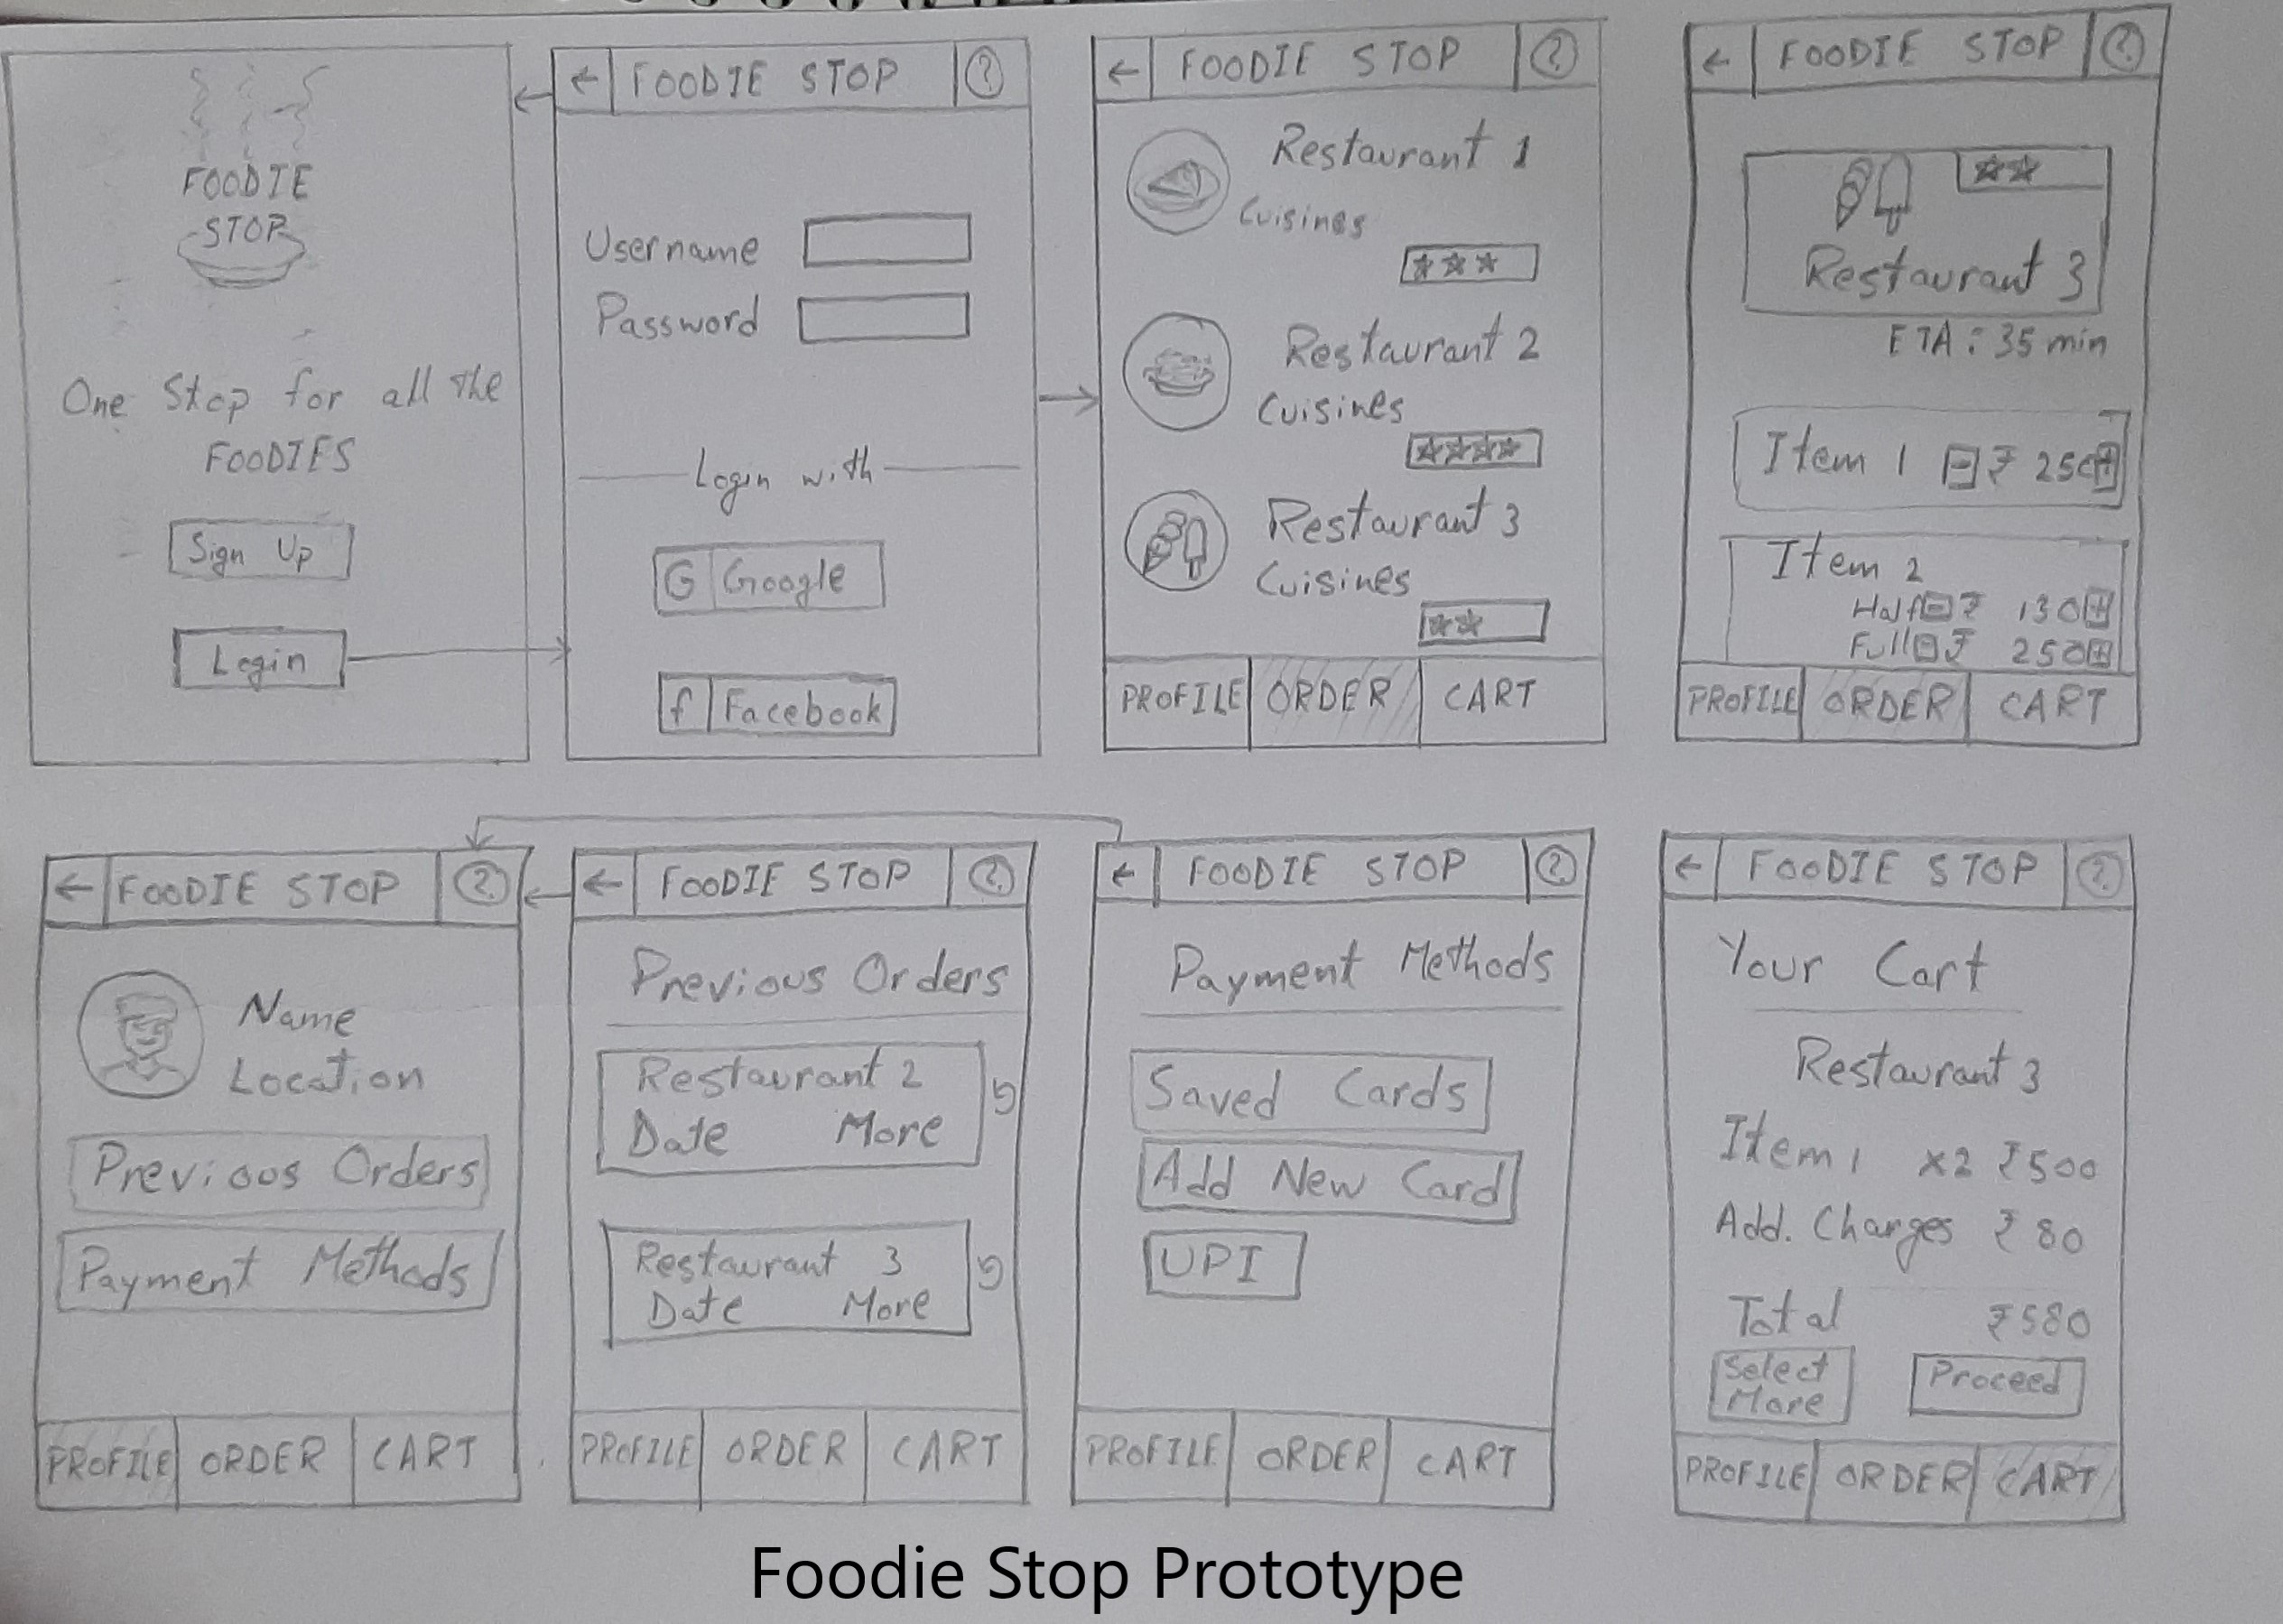 FOODIE
STOP
One Stop for all the
FOODIES
Sign Up
Login
← FOODIE STOP ?
Username
Password
Login with
G Google
f Facebook
← FOODIE STOP ?
Restaurant 1
Cuisines
Restaurant 2
Cuisines
Restaurant 3
Cuisines
PROFILE ORDER CART
← FOODIE STOP ?
Restaurant 3
ETA : 35 min
Item 1 - ₹ 250 +
Item 2
Half - ₹ 130 +
Full - ₹ 250 +
PROFILE ORDER CART
← FOODIE STOP ?
Name
Location
Previous Orders
Payment Methods
PROFILE ORDER CART
← FOODIE STOP ?
Previous Orders
Restaurant 2
Date More
Restaurant 3
Date More
PROFILE ORDER CART
← FOODIE STOP ?
Payment Methods
Saved Cards
Add New Card
UPI
PROFILE ORDER CART
← FOODIE STOP ?
Your Cart
Restaurant 3
Item 1 x2 ₹500
Add. Charges ₹ 80
Total ₹580
Select
More
Proceed
PROFILE ORDER CART
Foodie Stop Prototype